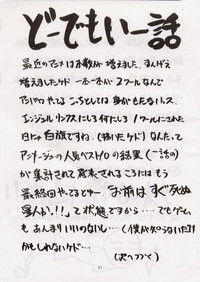 どーでもいー話
最近のアニメは本数が増えました、まんげえ
増えましたケド 一本一本が2クールなんで
アニパロやってる こっちとしては 多かもたないッス、
エンジェルリンクスにしろ何にしろ1クールにこされた
日にゃ 白旗ですね、(描いたケド)なんたって
アニメージュの人気ベスト10の結果(一話の)
が集計されて 発表される ころにはもう
最終回やってるとゆー お前はすぐ死ぬ
星人か!!って状態ですから・・・でもゲーム
も あんまりいいのないし・・・(僕が知らないだけ
かもしれないケド・・・ (次へつづく)
31